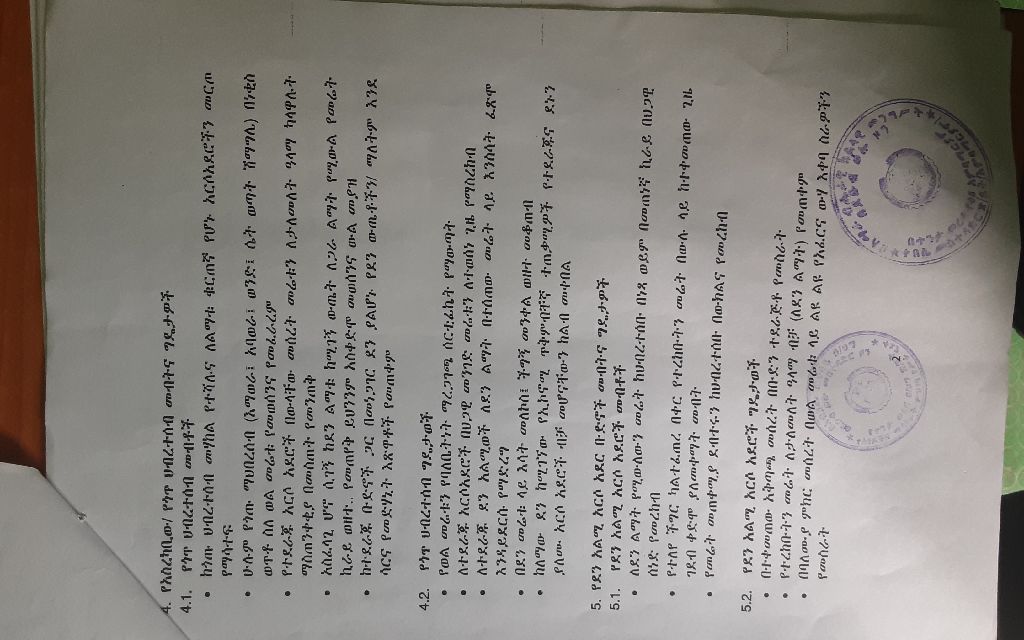 4. የአስረካቢው/ የጎጥ ህብረተሰብ መብትና ግዴታዎች
4.1. የጎጥ ህብረተሰብ መብቶች
• ከጎጡ ህብረተሰብ መካከል የተሻሉና ለልማቱ ቁርጠኛ የሆኑ አርሶአደሮችን መርጦ
የማሳተፍ
• ሁሉም የጎጡ ማህበረሰብ (አማራ፣ አባወራ፣ ወንድ፣ ሴት ወጣት ሽማግሌ) በነቂስ
ወጥቶ ስለ ወል መሬቱ የመወሰንና የመፈራረም
• የተደራጁ አርሶ አደሮች በውላቸው መሰረት መሬቱን ለታለመለት ዓላማ ካላዋሉት
ማስጠንቀቂያ በመስጠት የመንጠቅ
• አስፈላጊ ሆኖ ሲገኝ ከደን ልማቱ ከሚገኝ ውጤት ለጋራ ልማት የሚውል የመሬት
ኪራይ ወዘተ.. የመጠየቅ ይህንንም አስቀድሞ መወሰንና ውል መያዝ
• ከተደራጁ ቡድኖች ጋር በመነጋገር ደን ያልሆኑ የደን ውጤቶችን/ ማለትም እንደ
ሳርና የመድሃኒት እጽዋዶች የመጠቀም
4.2. የጎጥ ህብረተሰብ ግዴታዎች
• የወል መሬቱን የባለቤትነት ማረጋገጫ ሰርቲፊኬት የማውጣት
• ለተደራጁ አርሶአደሮች በህጋዊ መንገድ መሬቱን ለተወሰነ ጊዜ የማስረከብ
• ለተደራጁ ደን አልሚዎች ለደን ልማት በተሰጠው መሬት ላይ እንስሳት ፈጽሞ
እንዳይደርሱ የማድረግ
• በደን መሬቱ ላይ እሳት መለኮስ፣ ችግኝ መንቀል ወዘተ መቆጠብ
• ከለማው ደን ከሚገኘው የኢኮኖሚ ጥቅምብቸኛ ተጠቃሚዎች የተደራጁና ደኑን
ያለሙ አርሶ አደሮች ብቻ መሆናቸውን ከልብ መቀበል
5. የደን አልሚ አርሶ አደር ቡድኖች መብትና ግዴታዎች
5.1. የደን አልሚ አርሶ አደሮች መብቶች
• ለደን ልማት የሚውለውን መሬት ከህብረተሰቡ በነጻ ወይም በመጠነኛ ኪራይ በህጋዊ
ሰነድ የመረከብ
• የተለየ ችግር ካልተፈጠረ በቀር የተረከቡትን መሬት በውሉ ላይ ከተቀመጠው ጊዜ
ገደብ ቀድሞ ያለመቀማት መብት
• የመሬት መጠቀሚያ ደብተሩን ከህብረተሰቡ በውክልና የመረከብ
5.2. የደን አልሚ አርሶ አደሮች ግዴታወች
• በተቀመጠው አቅጣጫ መሰረት በቡድን ተደራጅቶ የመስራት
• የተረከቡትን መሬት ለታለመለት ዓላማ ብቻ (ለደን ልማት) የመጠቀም
• በባለሙያ ምክር መሰረት በወል መሬቱ ላይ ልዩ ልዩ የአፈርና ውሃ እቀባ ስራዎችን
የመስራት
2